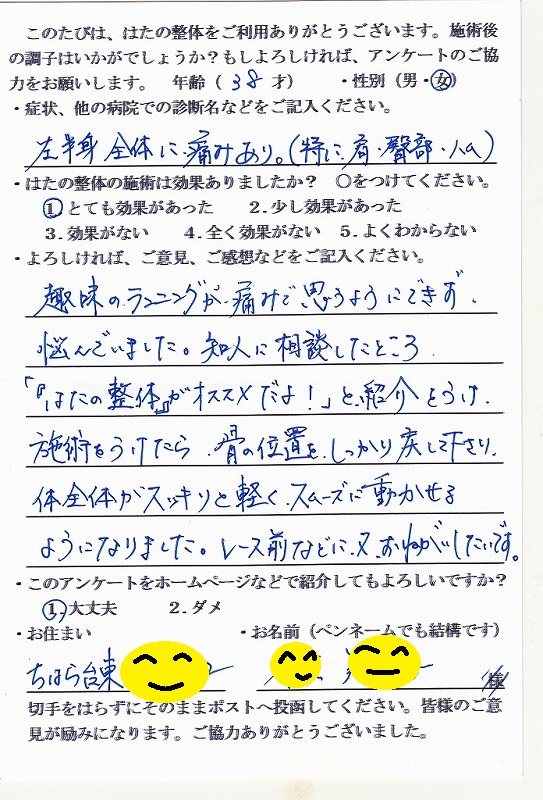 このたびは、はたの整体をご利用ありがとうございます。施術後
の調子はいかがでしょうか?もしよろしければ、アンケートのご協
力をお願いします。　年齢(38才)　・性別(男・女)
・症状、他の病院での診断名などをご記入ください。
左半身全体に痛みあり。(特に、肩・臀部・ハム)
・はたの整体の施術は効果ありましたか?　〇をつけてください。
1.とても効果があった　2.少し効果があった
3.効果がない　4.全く効果がない　5.よくわからない
・よろしければ、ご意見、ご感想などをご記入ください。
趣味のランニングが、痛みで思うようにできず、
悩んでいました。知人に相談したところ、
「『はたの整体』がオススメだよ!」と、紹介をうけ、
施術をうけたら、骨の位置を、しっかり戻して下さり、
体全体がスッキリと軽く、スムーズに動かせる
ようになりました。レース前などに、又、おねがいしたいです。
・このアンケートをホームページなどで紹介してもよろしいですか?
1.大丈夫　2.ダメ
・お住まい　・お名前(ペンネームでも結構です)
ちはら台東　様
切手をはらずにそのままポストへ投函してください。皆様のご意
見が励みになります。ご協力ありがとうございました。